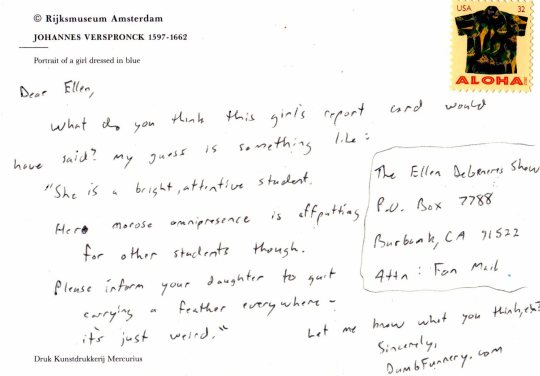 © Rijksmuseum Amsterdam
JOHANNES VERSPRONCK 1597-1662
Portrait of a girl dressed in blue
USA 32
ALOHA
Dear Ellen,
What do you think this girl's report card would
have said? My guess is something like:
"She is a bright, attentive student.
Her morose omnipresence is offputting
for other students though.
Please inform your daughter to quit
carrying a feather everywhere –
it's just weird."
The Ellen DeGeneres Show
P.O. Box 7788
Burbank, CA 91522
Attn: Fan Mail
Let me know what you think,
Sincerely,
DumbFunnery.com
Druk Kunstdrukkerij Mercurius